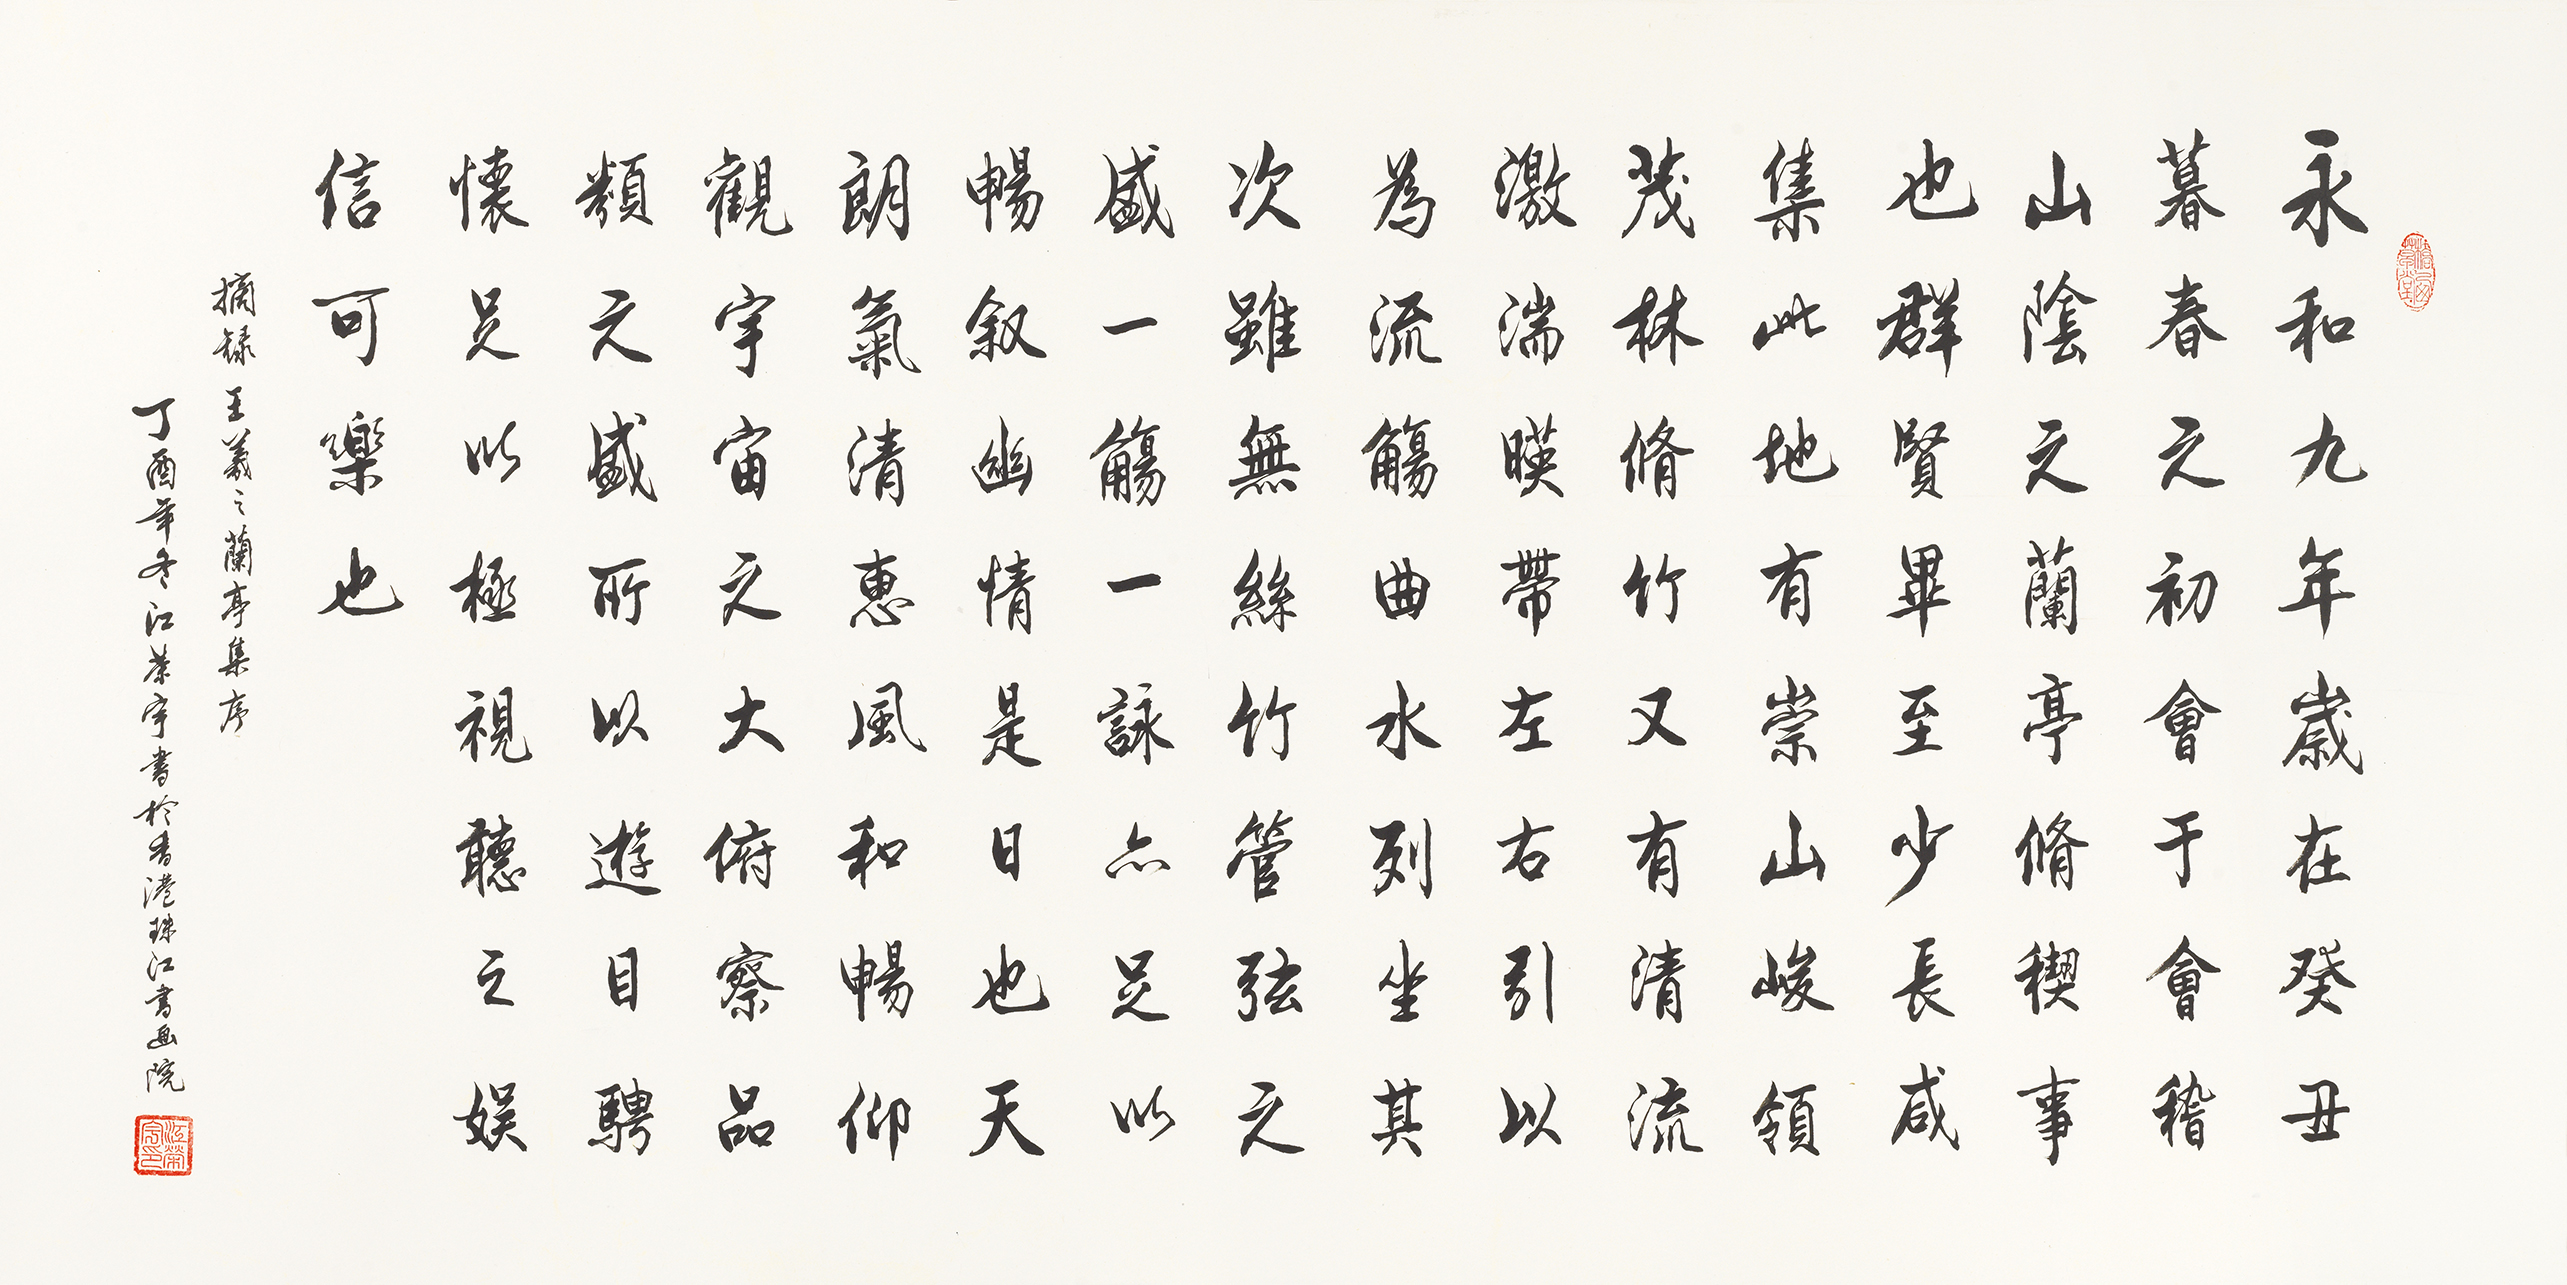 永和九年歲在癸丑
暮春之初會于會稽
山陰之蘭亭脩稧事
也群賢畢至少長咸
集此地有崇山峻領
茂林脩竹又有清流
激湍暎帶左右引以
為流觴曲水列坐其
次雖無絲竹管弦之
盛一觴一詠亦足以
暢叙幽情是日也天
朗氣清惠風和暢仰
觀宇宙之大俯察品
類之盛所以遊目騁
懷足以極視聽之娛
信可樂也
摘録王羲之蘭亭集序
丁酉年冬江荣宇書於香港珠江書画院
江榮宇印